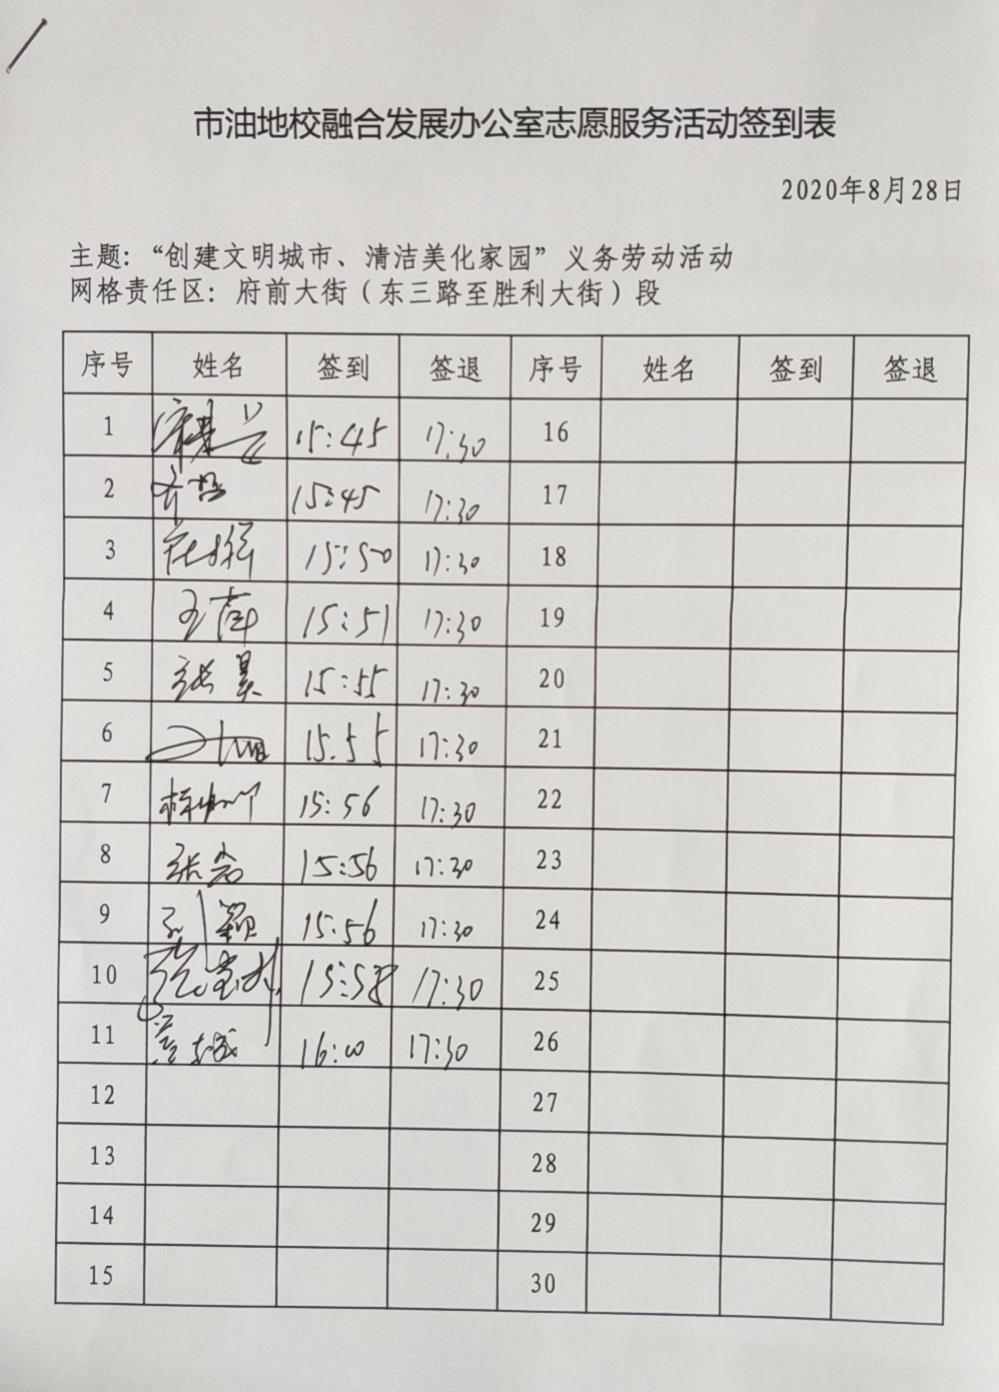 市油地校融合发展办公室志愿服务活动签到表
2020年8月28日
主题：“创建文明城市、清洁美化家园”义务劳动活动
网格责任区：府前大街（东三路至胜利大街）段
序号 姓名 签到 签退 序号 姓名 签到 签退
1 15:45 17:30 16
2 15:45 17:30 17
3 15:50 17:30 18
4 15:51 17:30 19
5 张昊 15:55 17:30 20
6 15.55 17:30 21
7 15:56 17:30 22
8 张岩 15:56 17:30 23
9 孙颖 15:56 17:30 24
10 15:58 17:30 25
11 16:00 17:30 26
12 27
13 28
14 29
15 30